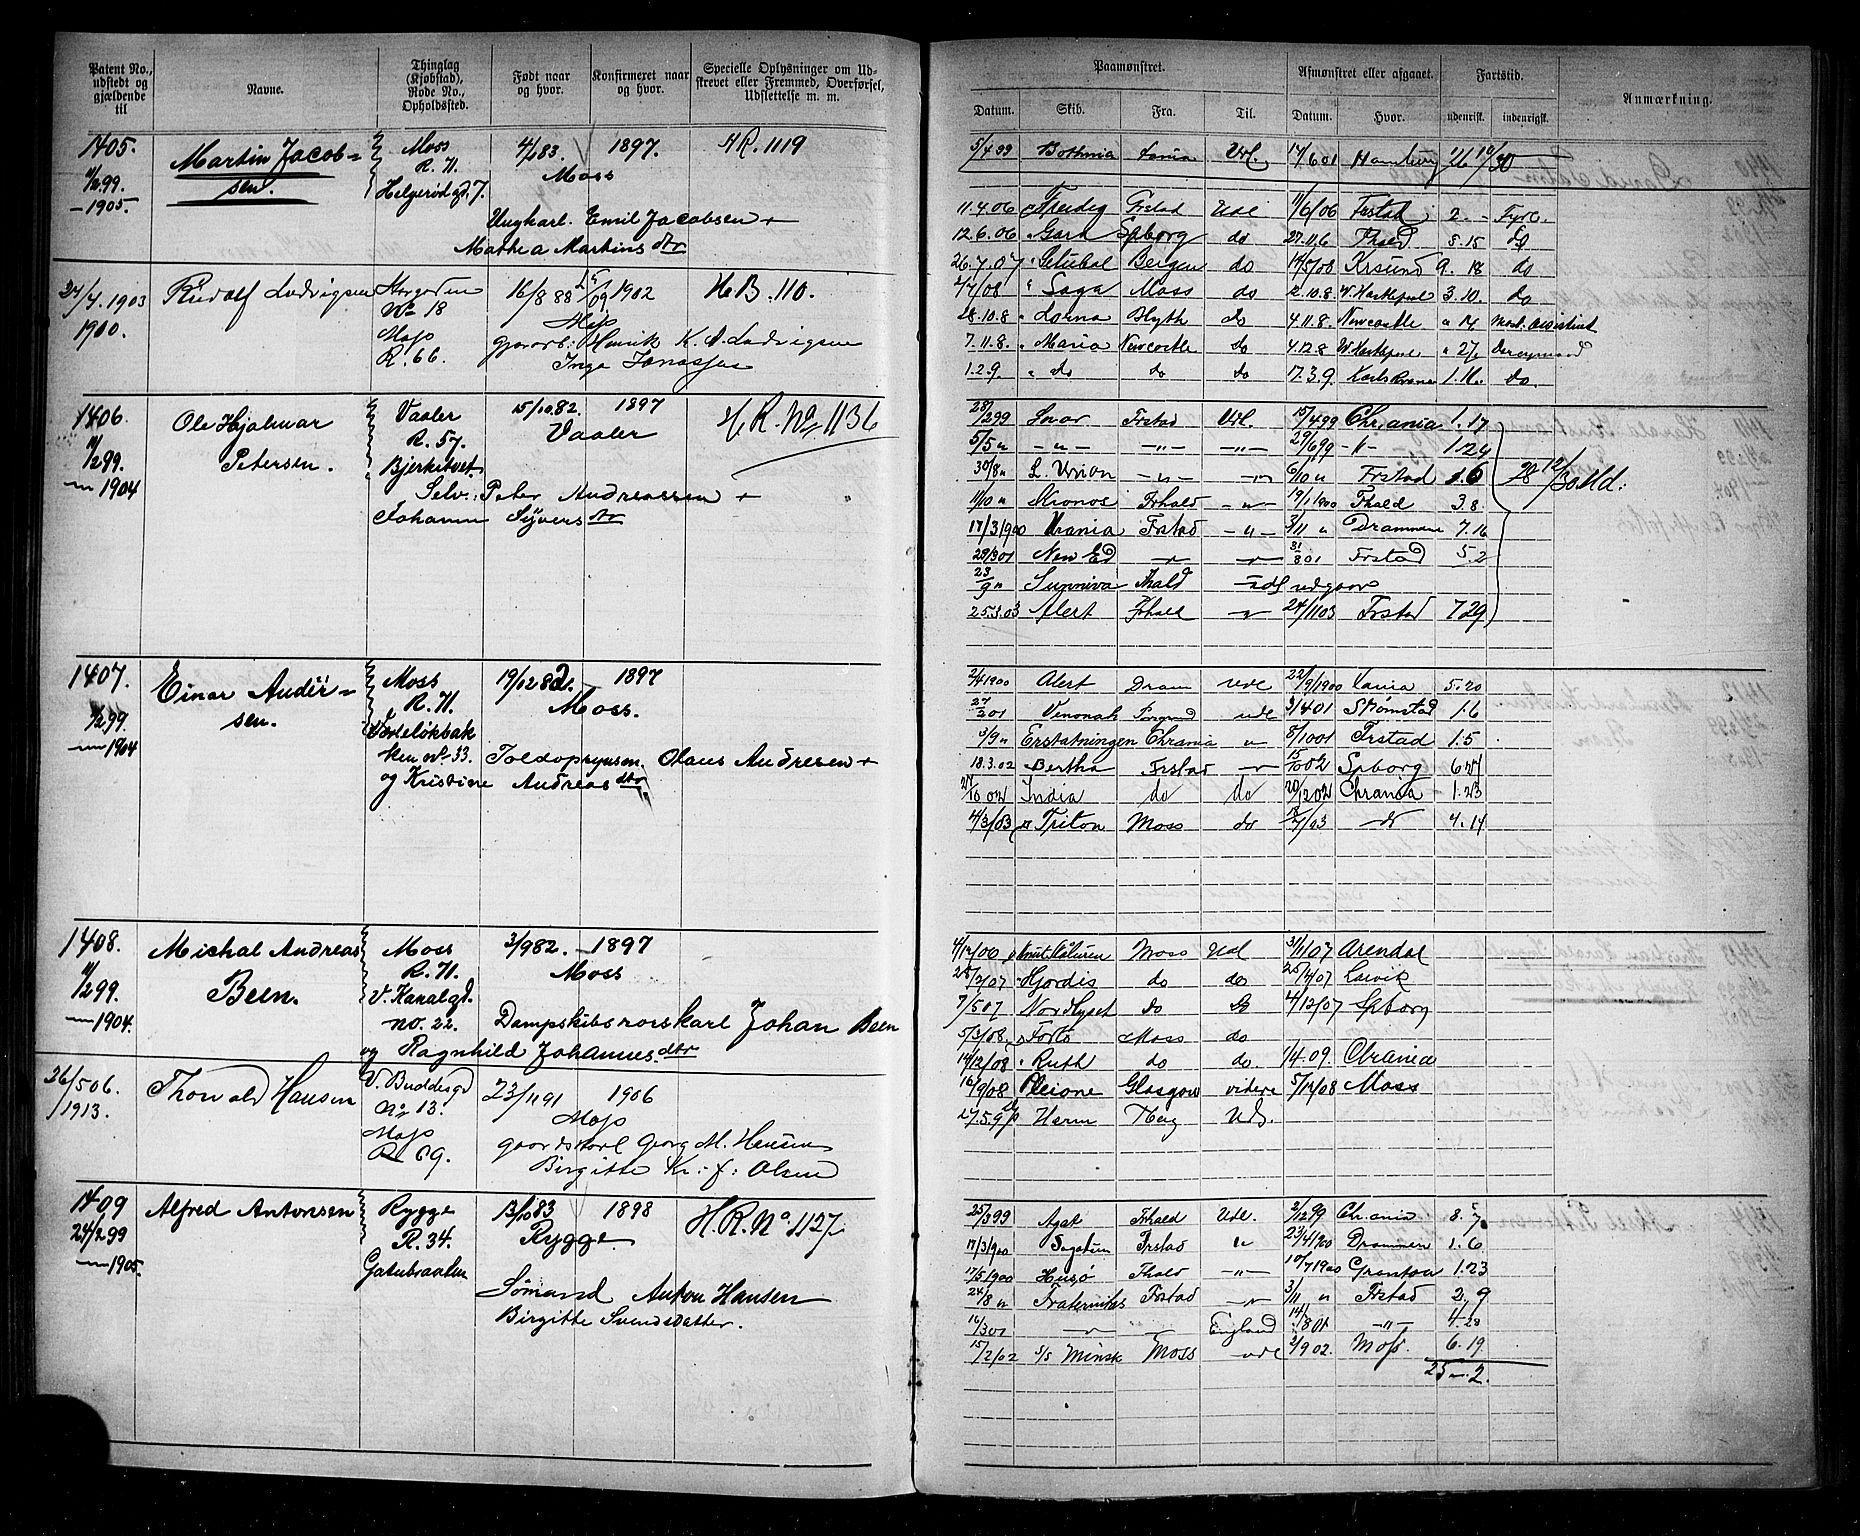 Patent No., udstedt og gjældende til
Navne.
Thinglag (Kjøbstad), Rode No., Opholdssted.
Født naar og hvor.
Konfirmeret naar og hvor.
Specielle Oplysninger om Udskrevet eller Fremmed, Overførsel, Udslettelse m. m.
Paamønstret.
Afmønstret eller afgaaet.
Fartstid.
Anmærkning.
Datum. Skib. Fra. Til. Datum. Hvor. udenrisk. indenrigsk.
1405. Martin Jacob- Moss 4/1 83. 1897. HR. 1119
11/2 99. sen. R. 71. Moss
—1905. Helgerødgd. 7.
Ungkarl. Emil Jacobsen +
Mathea Martins dtr
24/4. 1903 Rudolf Ludvigsen No 18 16/8 88 1902 H.B. 110.
1910. Moss Moss
R. 66. Henrik K. A. Ludvigsen
Inga
1406. Ole Hjalmar Vaaler 15/10 82. 1897 H.R. No 1136
11/2 99. Petersen. R. 57. Vaaler
— 1904 Bjerkitvet
Selv: Peter Andreassen +
Johanne Syvers dtr
1407. Einar Andre- Moss 19/12 82. 1897
11/2 99. sen. R. 71. Moss.
— 1904
ken No 33. Toldopsynsm. Olaus Andresen +
og Kristine Andreas dtr.
1408. Michal Andreas Moss 3/9 82. — 1897
11/2 99. Been. R. 71. Moss
— 1904. V. Kanalgd.
no. 22. Dampskibsrorskarl Johan Been
og Ragnhild Johannes dtr
26/5 06. Thorvald Hansen V. Buddesgd 23/11 91 1906
1913. No 13. Moss
Moss Georg M. Hansen
R 69. Birgitte Kr. f: Olsen
1409 Alfred Antonsen Rygge 13/10 83 1898 H.R. No 1127.
24/2 99 R. 34. Rygge
— 1905.
Sømand Anton Hansen
Birgitte Svendsdatter.
5/4 99 Bothnia Udl. 17/6 01 Hamburg
11.4.06 Frstad Udl 11/6/06 Frstad 2. - Fyrb.
12.6.06 Spborg do 27.11.6 Fhald 5.15 do
26.7.07 Bergen do 14/5/08 Krsund 9. 18 do
2/7/08 " Saga Moss do 2.10.8 W. Hartlepool 3.10. do
28.10.8 " Lorna Blyth do 4.11.8. Newcastle " 14
7.11.8. " Maria Newcastle do 4.12.8 W. Hartlepool " 27
1.2.9. " do do do 17.3.9. 1.16. do.
28/2 99 Frstad Udl. 15/4 99 Chrania 1. 17
5/5 " — " — — " — — " — 29/6 99 - " - 1.24
30/8 " L. Union — " — — " — 6/10 " Frstad 1.6 28 12/30 Md:
11/10 " Kronos Frhald — " — 19/1 1900 Fhald 3.8.
17/3 1900 Urania Frstad — " — 3/11 " Drammen 7.16
28/3 01 New Ed — " — — " — 31/8 01 Frstad 5.2
23/9 " Sunniva Fhald — udl udgaar
25.3.03 Alert Fhald — " — 24/11 03 Frstad 7 29
2/4 1900 Alert Dram Udl 22/9/1900 5.20
27/2 01 Venonah udl 3/4 01 Strømstad 1.6
3/9 " Erstatningen Chrania " 8/10 01 Frstad 1.5
18.3.02 Bertha Frstad — " — 15/10 02 Spborg 6 27
27/10 02 India do do 20/12 02 Chrania 1.23
4/3/03 Triton Moss do 18/7/03 4.14
4/12/00 Moss Udl 3/1 07 Arendal
25/2/07 Hjørdis do do 25/4/07 Larvik
7/5 07 Nordlyset do do 4/12/07 Spborg
5/3/08 Moss do
14/12/08 " Ruth do do 1/4 09. Chrania
16/9/08 Pleione Glasgow videre 5/12/08 Moss
27.5.9 Udl.
25/3 99 Agat Fhald Udl. 2/12 99 Chrania 8. 7
17/3 1900 Sagatun Frstad " 23/4/1900 Drammen 1. 6
17/5 1900 Husø Fhald — " — 10/7 1900 1.23
24/8 " Fraternitas Frstad — " — 3/11 " Frstad 2. 9
16/3 01 — " — England 14/8 01 — " — 4.28
15/2/02 S/S Minsk Moss udl 2/9 02. Moss. 6.19
25 - 2.